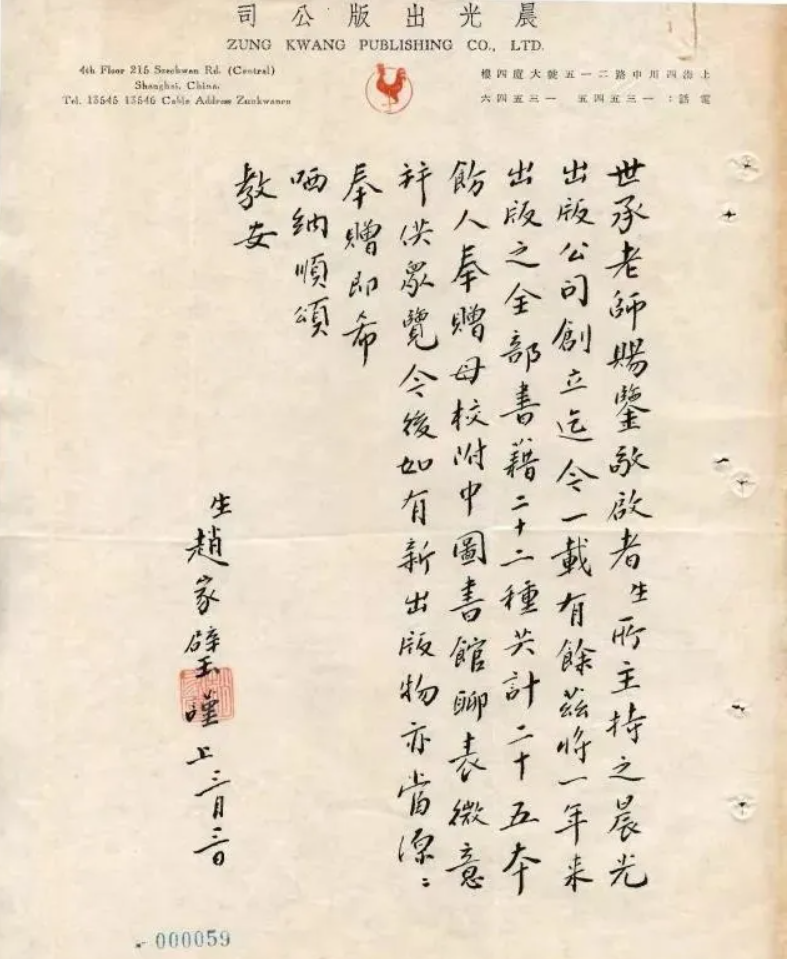 司公版出光晨
ZUNG KWANG PUBLISHING CO., LTD.
4th Floor 215 Szechwen Rd. (Central)
Shanghai, China.
Tel. 13545 13546 Cable Address Zunkwanco
樓四廈大號五一二路中川四海上
六四五三一 五四五三一：話電
世承老師賜鑒敬啟者生所主持之晨光
出版公司創立迄今一載有餘茲將一年来
出版之全部書籍二十二種共計二十五本
飭人奉贈母校附中圖書館聊表微意
并供眾覽今後如有新出版物亦當源〻
奉贈即希
哂納順頌
教安
生趙家璧謹上三月三日
000059